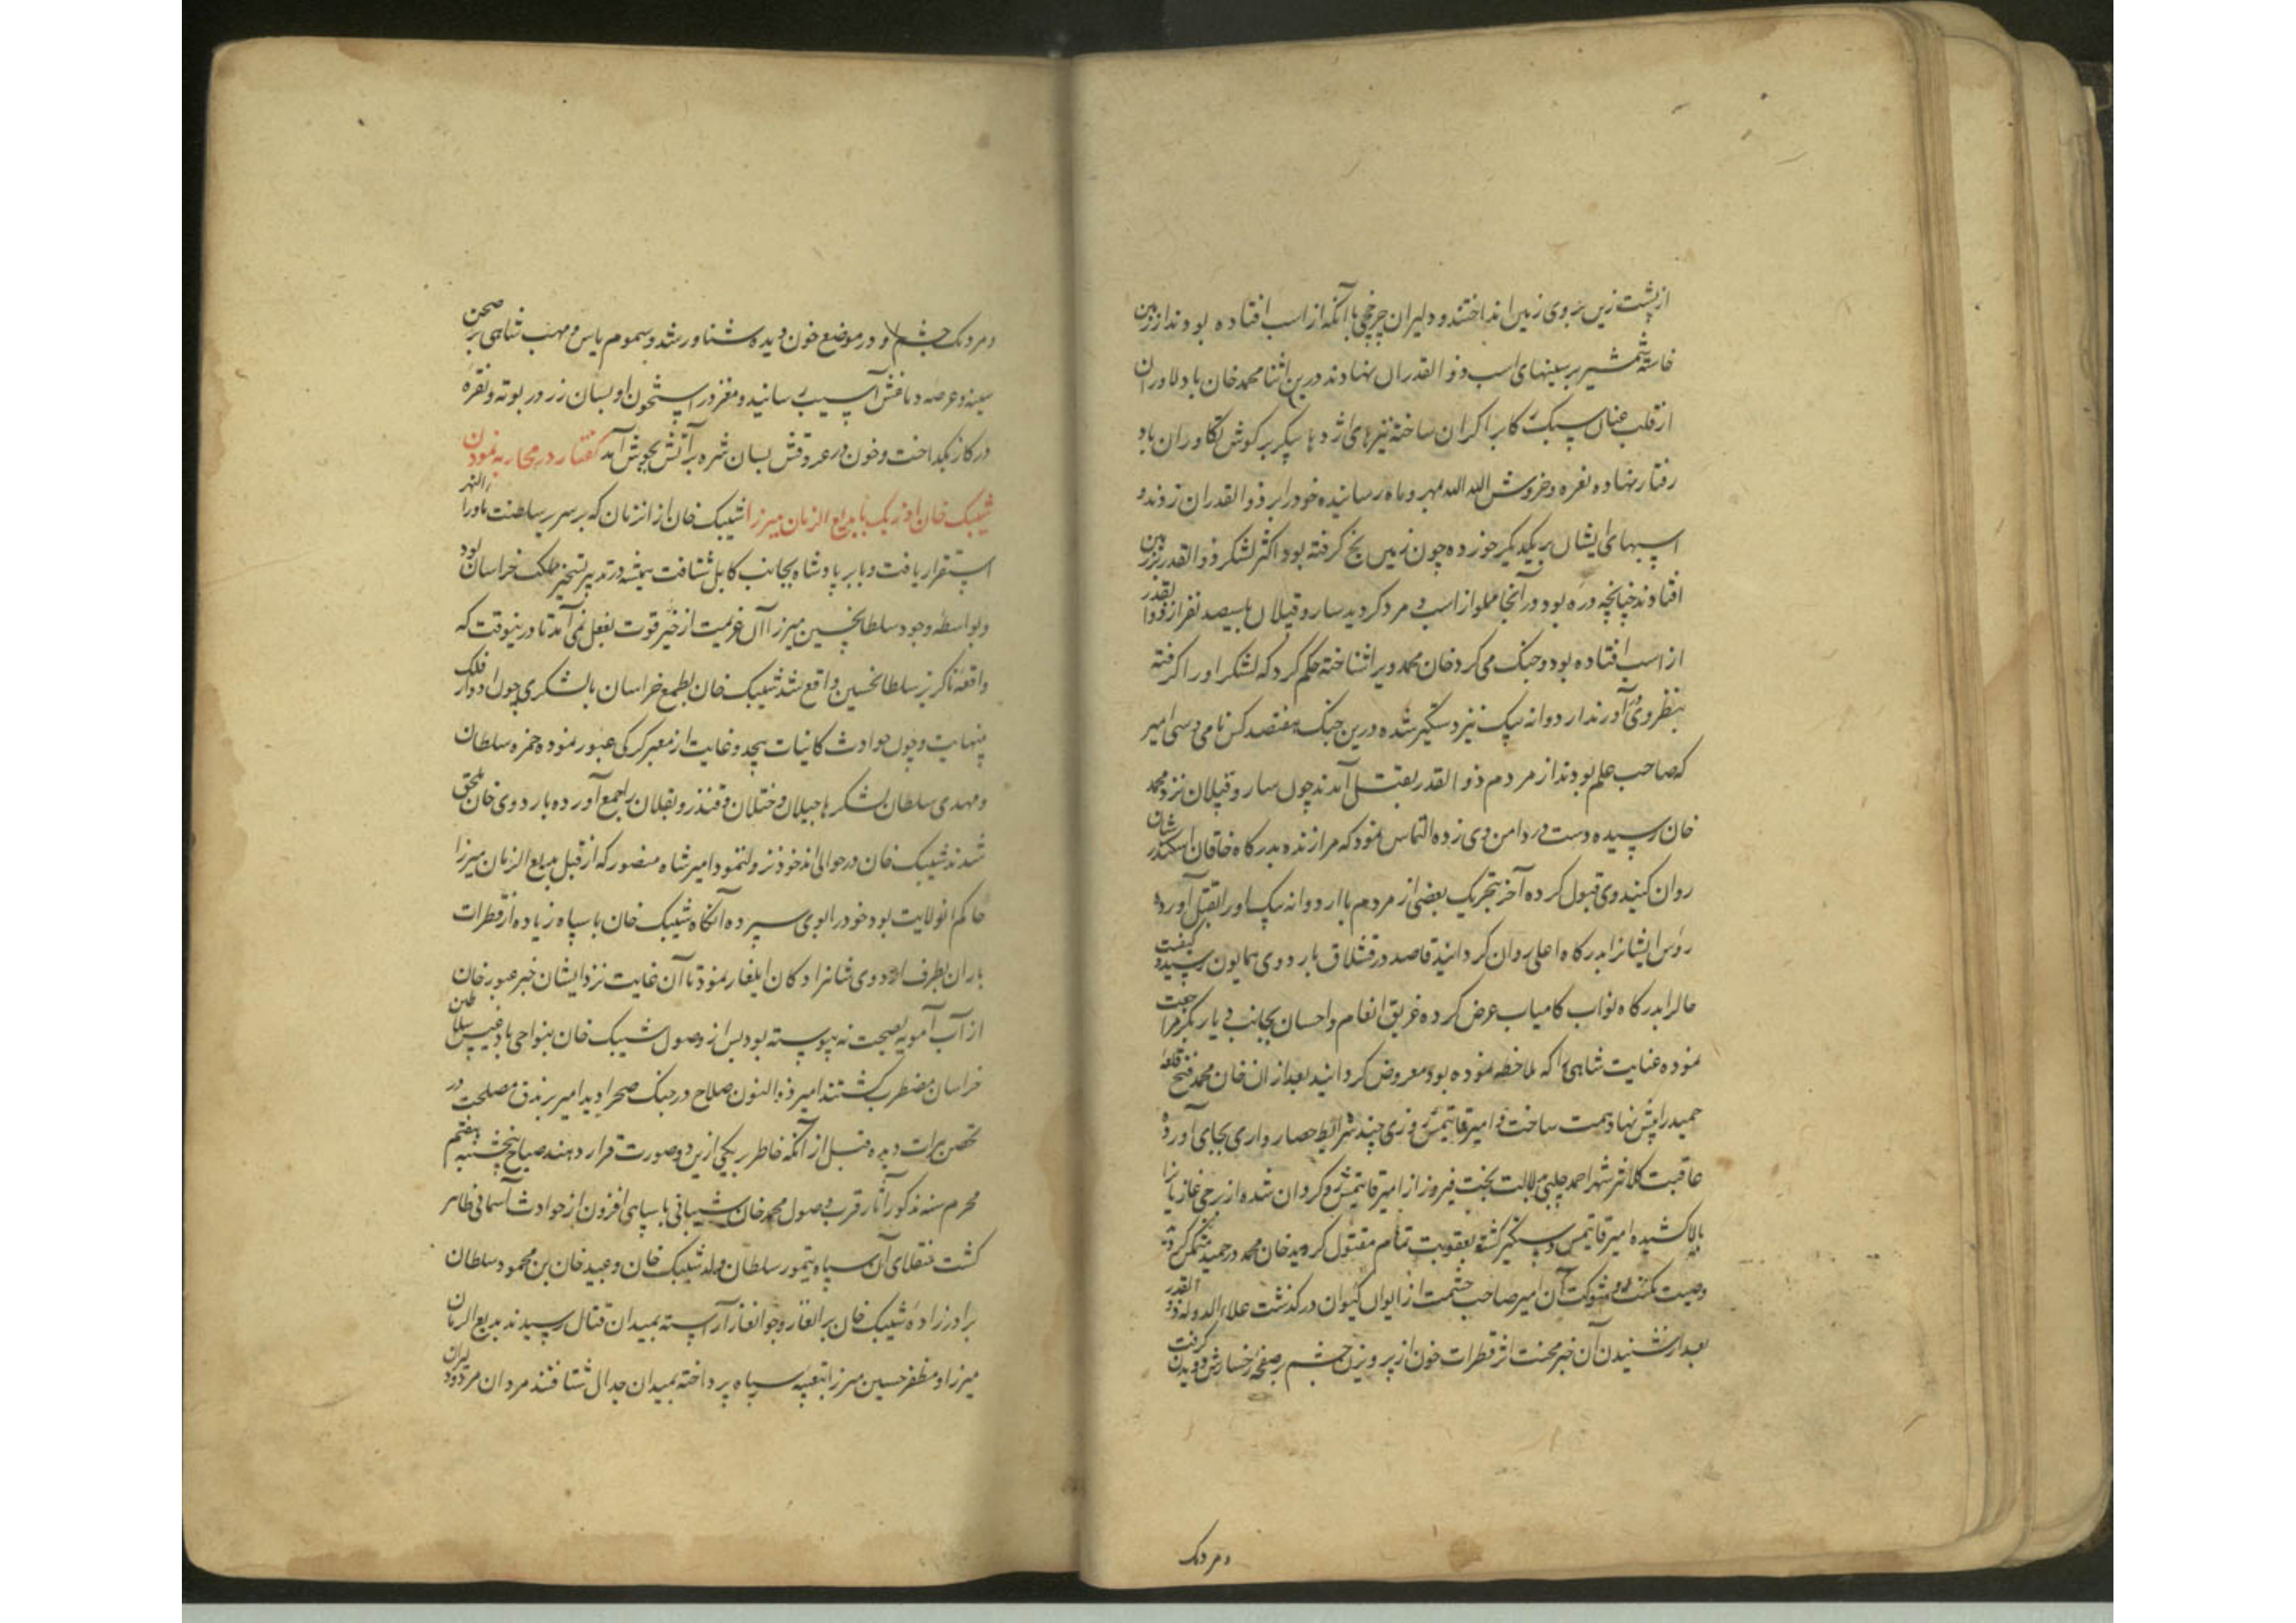 از پشت زین بروی زمین انداختند و دلیران چرخچی با آنکه از اسب افتاده بودند از زمین
خاسته شمشیر بر سینهای اسب ذوالقدران نهادند درین اثنا محمد خان با دلاوران
از قلب عنان سبک رکاب را کران ساخته نیزهای اژدها پیکر بر کوش تکاوران باد
رفتار نهاده نعره و خروش الله الله بمهر و ماه رسانیده خود را بر ذوالقدران زدند و
اسبهای ایشان بر یکدیکر خورده چون زمین یخ کرفته بود اکثر لشکر ذوالقدر بر زمین
افتادند چنانچه دره بود در آنجا مملو از اسب و مرد کردید ساروقپلان با سیصد نفر از ذوالقدر
از اسب افتاده بود و جنک می کرد خان محمد ویرا شناخته حکم کرد که لشکر او را کرفته
بنظر وی آورند اردوانه بیک نیز دستکیر شده درین جنک هفتصد کس نامی و سی امیر
که صاحب علم بودند از مردم ذوالقدر بقتل آمدند چون ساروقپلان نزد محمد
خان رسیده دست در دامن وی زده التماس نمود که مرا زنده بدرکاه خاقان اسکندر شان
روان کنید وی قبول کرده آخر بتحریک بعضی از مردم با اردوانه بیک او را بقتل آورده
رؤس ایشانرا بدرکاه اعلی روان کردانید قاصد در قشلاق باردوی همایون رسیده کیفیت
حالرا بدرکاه نواب کامیاب عرض کرده غریق انعام و احسان بجانب دیار بکر مراجعت
نموده عنایت شاهی را که ملاحظه نموده بود معروض کردانید بعد از ان خان محمد فتح قلعه
حمید را پیش نهاد همت ساخت و امیر قایتمس روزی چند شرایط حصار داری بجای آورده
عاقبت کلانتر شهر احمد چلبی بدلالت بخت فیروز از امیر قایتمش رو کردان شده از برجی غازیانرا
بالا کشیده امیر قایتمس دستکیر کشته بعقوبت تمام مقتول کردید خان محمد در حمید متمکن کردید
وصیت مکنت و شوکت آن امیر صاحب حشمت از ایوان کیوان در کذشت علاء الدوله ذوالقدر
بعد از شنیدن آن خبر محنت اثر قطرات خون از پرویزن چشم بر صفحه رخسارش دویدن کرفت
و مردمک
و مردمک چشم او در موضع خون دیده شناور شد و سموم یاس و مهنب شاهی بر صحن
سینه و عرصه دماغش آسیب رسانید و مغز در استخون او بسان زر در بوته و نقره
در کاز بکداخت و خون در عروقش بسان شره بر آتش بجوش آمد کفتار در محاربه نمودن
شیبک خان اوزبک با بدیع الزمان میرزا شیبک خان از انزمان که بر سریر سلطنت ماورا النهر
استقرار یافت و بابر پادشاه بجانب کابل شتافت همیشه در تدبیر تسخیر ملک خراسان بود
و بواسطه وجود سلطانحسین میرزا آن عزیمت از حیز قوت بفعل نمی آمد تا درینوقت که
واقعه ناکزیر سلطانحسین واقع شد شیبک خان بطمع خراسان با لشکری چون ادوار فلک
بینهایت و چون حوادث کائنات بیحد و غایت از معبر کرکی عبور نموده حمزه سلطان
و مهدی سلطان لشکرها جیلان و ختلان و قندز و بقلان را جمع آورده باردوی خان ملحق
شدند شیبک خان در حوالی اندخود نزول نمود امیر شاه منصور که از قبل بدیع الزمان میرزا
حاکم انولایت بود خود را بوی سپرده آنکاه شیبک خان با سپاه زیاده از قطرات
باران بطرف اردوی شاهزادکان ایلغار نمود تا آن غایت نزد ایشان خبر عبور خان
از آب آمویه بصحت نه پیوسته بود پس از وصول شیبک خان بنواحی بادغیس سلاطین
خراسان مضطرب کشتند امیر ذوالنون صلاح در جنک صحرا دید امیر برندق مصلحت در
تحصن برات دیده قبل از آنکه خاطر بر یکی ازین دو صورت قرار دهند صباح پنجشنبه هفتم
محرم سنه مذکور آثار قرب وصول محمد خان شیبانی با سپاهی افزون از حوادث آسمانی ظاهر
کشت منقلای آن سپاه تیمور سلطان ولد شیبک خان و عبید خان بن محمود سلطان
برادرزاده شیبک خان برانغار و جوانغار آراسته بمیدان قتال رسیدند بدیع الزمان
میرزا و مظفر حسین میرزا بتعبیه سپاه پرداخته بمیدان جدال شتافتند مردان مرد و دلیران